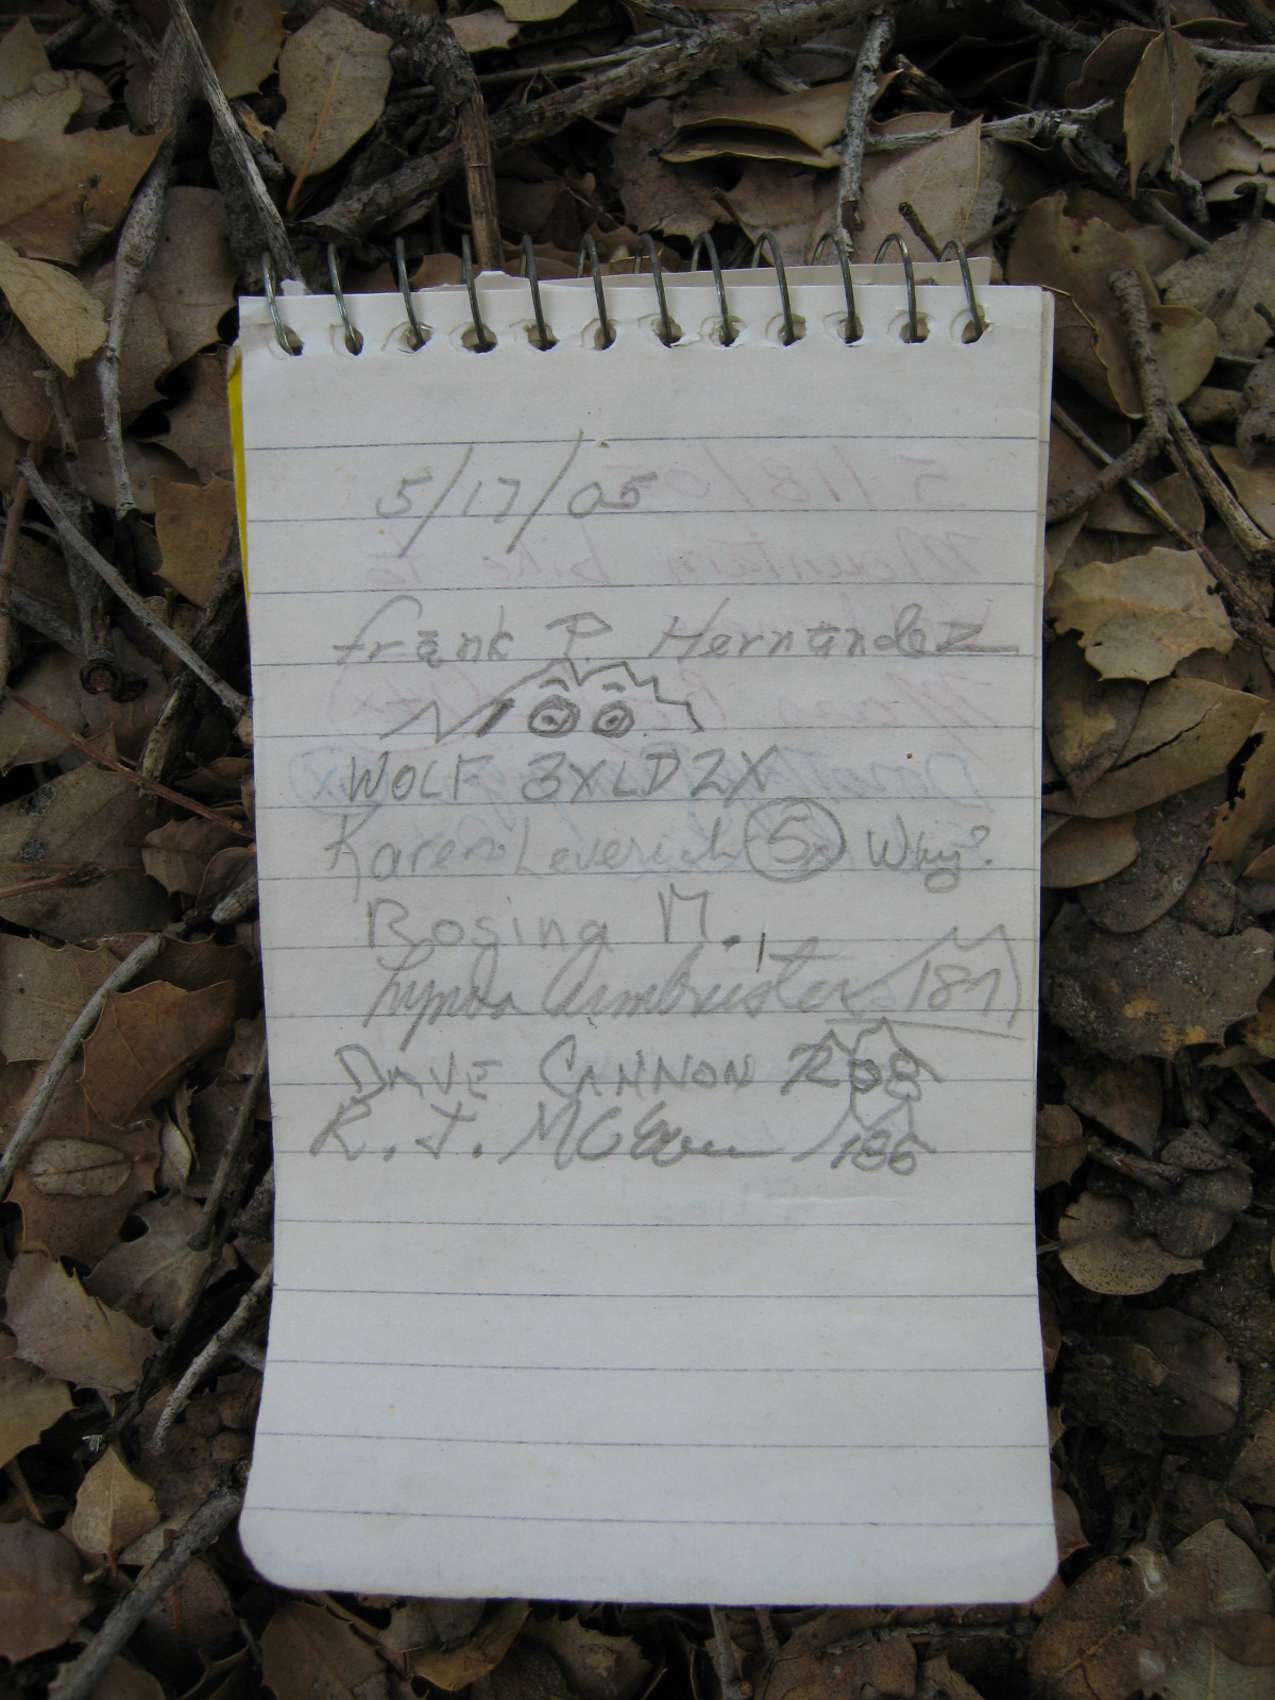 5/17/05
Frank P. Hernandez
WOLF 3XLD2X
Karen Leverich 5x Why?
Rosina M.
Lynda Armbruster 187
DAVE CANNON
R. J. McEwen 186